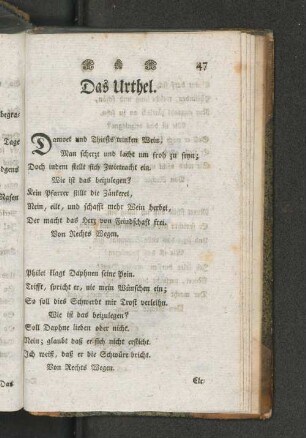 47
Das Urthel.
Damoet und Thirsis trinken Wein,
Man scherzt und lacht um froh zu seyn;
Doch indem stellt sich Zwietracht ein.
Wie ist das beizulegen?
Kein Pfarrer stillt die Zänkerei,
Nein, eilt, und schafft mehr Wein herbei,
Der macht das Herz von Feindschaft frei.
Von Rechts Wegen.
Philet klagt Daphnen seine Pein.
Trifft, spricht er, nie mein Wünschen ein;
So soll dies Schwerdt mir Trost verleihn.
Wie ist das beizulegen?
Soll Daphne lieben oder nicht.
Nein; glaubt daß er sich nicht ersticht.
Ich weiß, daß er die Schwüre bricht.
Von Rechts Wegen.
Ele-
begra-
Tage
Rasen
Das